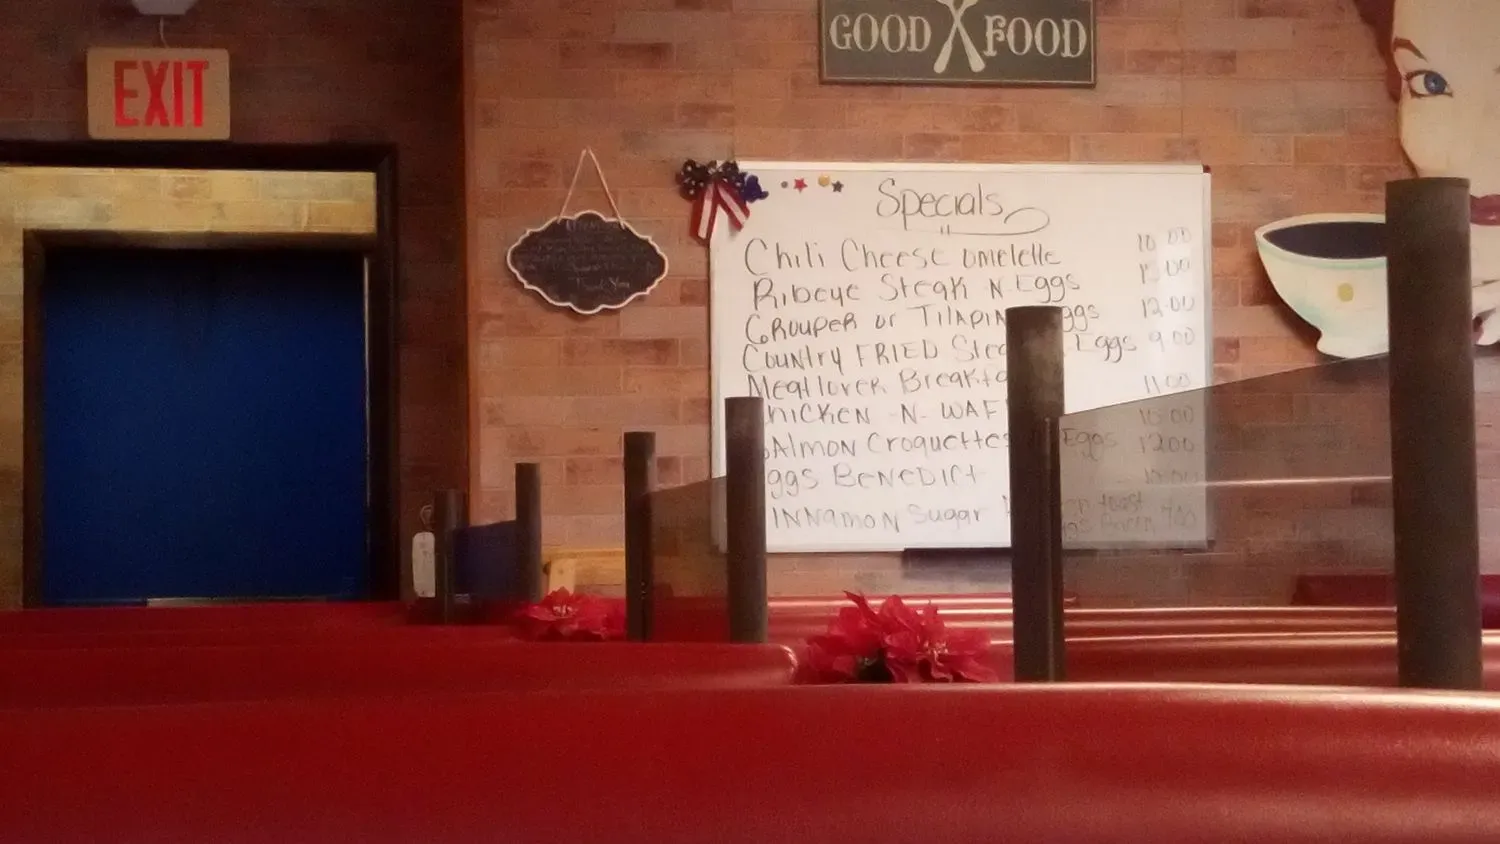 GOOD FOOD
EXIT
Specials
Chili Cheese Omelette 10.00
Ribeye Steak N. Eggs 15.00
Grouper or Tilapia Eggs 12.00
Country FRIED Steak Eggs 9.00
Meatlover Breakfa 11.00
Chicken -N- WAF 10.00
Salmon Croquettes Eggs 12.00
Eggs BENEDICT 10.00
Cinnamon Sugar toast 7.00
Thank You